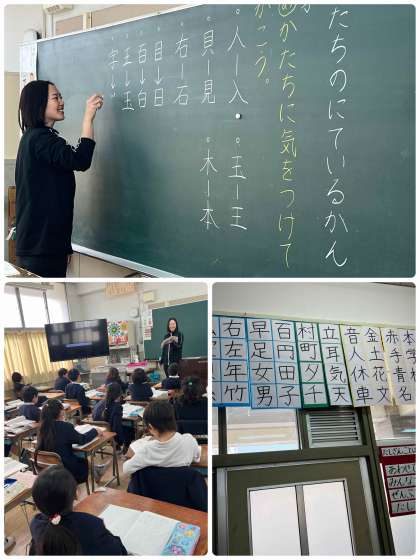 たちのにているかん
かたちに気をつけて
かこう。
。人ー入 。玉ー王
。貝ー見 。木ー本
。右ー石
目→日
百→白
王→玉
字→
赤手青名
金土花文
音人休車
立耳気天
村町夕千
百円田子
早足女男
右左年竹
あわせ
みんな
ぜんぶ
たし